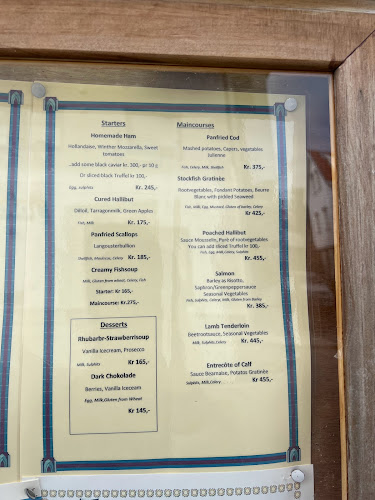 Starters
Homemade Ham
Hollandaise, Winther Mozzarella, Sweet
tomatoes
..add some black caviar kr. 300,- pr 10 g
Or sliced black Truffel kr 100,-
Egg, sulphits Kr. 245,-
Cured Hallibut
Dilloil, Tarragonmilk, Green Apples
Fish, Milk Kr 175,-
Panfried Scallops
Langousterbullion
Shellfish, Mouluscs, Celery Kr. 185,-
Creamy Fishsoup
Milk, Gluten from wheat, Celery, Fish
Starter: Kr 165,-
Maincourse: Kr.275,-
Desserts
Rhubarbr-Strawberrisoup
Vanilla Icecream, Prosecco
Milk, Sulphits Kr 165,-
Dark Chokolade
Berries, Vanilla Iceceam
Egg, Milk,Gluten from Wheat
Kr 145,-
Maincourses
Panfried Cod
Mashed potatoes, Capers, vegetables
Julienne
Fish, Celery, Milk, Shellfish Kr 375,-
Stockfish Gratinèe
Rootvegetables, Fondant Potatoes, Beurre
Blanc with pickled Seaweed
Fish, Milk, Egg, Mustard, Gluten of barley, Celery
Kr 425,-
Poached Hallibut
Sauce Mousselin, Purè of rootvegetables
You can add sliced Truffel kr 100,-
Fish, Egg, Milk, Shellfish, Celery
Kr. 455,-
Salmon
Barley as Risotto,
Saphron/Greenpeppersauce
Seasonal Vegetables
Fish, Sulphits, Celery, Milk, Gluten from Barley
Kr 385,-
Lamb Tenderloin
Beetrootsauce, Seasonal Vegetables
Milk, Sulphits,Celery Kr. 445,-
Entrecôte of Calf
Sauce Bearnaise, Potatos Gratinèe
Sulpits, Milk,Celery Kr 455,-